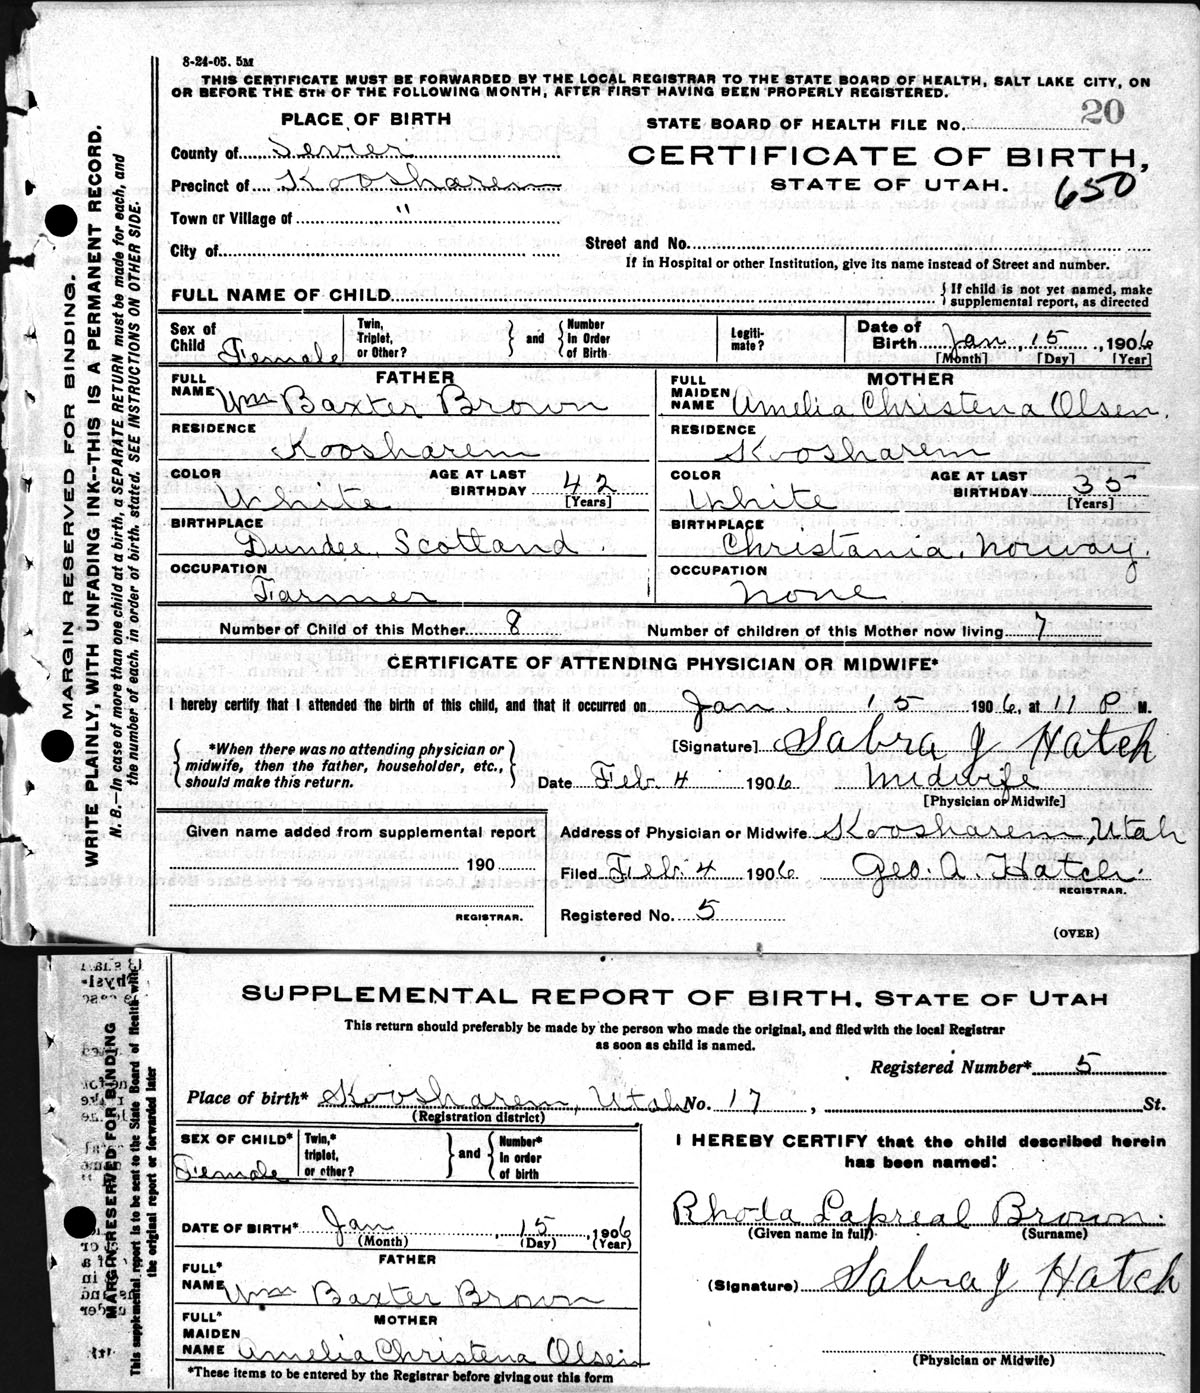 8-24-05. 5M
THIS CERTIFICATE MUST BE FORWARDED BY THE LOCAL REGISTRAR TO THE STATE BOARD OF HEALTH, SALT LAKE CITY, ON
OR BEFORE THE 5TH OF THE FOLLOWING MONTH, AFTER FIRST HAVING BEEN PROPERLY REGISTERED.
PLACE OF BIRTH
STATE BOARD OF HEALTH FILE No. 20
County of Sevier
CERTIFICATE OF BIRTH,
Precinct of Koosharem
STATE OF UTAH.
650
Town or Village of "
City of
Street and No.
If in Hospital or other Institution, give its name instead of Street and number.
FULL NAME OF CHILD
{ If child is not yet named, make
supplemental report, as directed
Sex of Child Female
Twin, Triplet, or Other?
} and {
Number in Order of Birth
Legiti-mate?
Date of Birth Jan, 15, 1906
[Month] [Day] [Year]
FATHER
FULL NAME Wm Baxter Brown
MOTHER
FULL MAIDEN NAME Amelia Christena Olsen.
RESIDENCE Koosharem
RESIDENCE Koosharem
COLOR White
AGE AT LAST BIRTHDAY 42 [Years]
COLOR White
AGE AT LAST BIRTHDAY 35 [Years]
BIRTHPLACE Dundee, Scotland.
BIRTHPLACE Christania, Norway.
OCCUPATION Farmer
OCCUPATION None
Number of Child of this Mother 8
Number of children of this Mother now living 7
CERTIFICATE OF ATTENDING PHYSICIAN OR MIDWIFE*
I hereby certify that I attended the birth of this child, and that it occurred on Jan. 15 1906, at 11 P M.
*When there was no attending physician or
midwife, then the father, householder, etc.,
should make this return.
[Signature] Sabra J Hatch
Date Feb. 4 1906 Midwife
[Physician or Midwife]
Given name added from supplemental report
190
REGISTRAR.
Address of Physician or Midwife Koosharem, Utah
Filed Feb. 4 1906 Geo. A. Hatch.
REGISTRAR.
Registered No. 5
(OVER)
MARGIN RESERVED FOR BINDING.
WRITE PLAINLY, WITH UNFADING INK--THIS IS A PERMANENT RECORD.
N. B.—In case of more than one child at a birth, a SEPARATE RETURN must be made for each, and
the number of each, in order of birth, stated. SEE INSTRUCTIONS ON OTHER SIDE.
SUPPLEMENTAL REPORT OF BIRTH, STATE OF UTAH
This return should preferably be made by the person who made the original, and filed with the local Registrar
as soon as child is named.
Registered Number* 5
Place of birth* Koosharem, Utah No. 17, St.
(Registration district)
SEX OF CHILD* Female
Twin,* triplet, or other?
} and {
Number* in order of birth
I HEREBY CERTIFY that the child described herein
has been named:
Rhoda Lapreal Brown.
(Given name in full) (Surname)
DATE OF BIRTH* Jan, 15, 1906
(Month) (Day) (Year)
FATHER
FULL* NAME Wm Baxter Brown
(Signature) Sabra J Hatch
MOTHER
FULL* MAIDEN NAME Amelia Christena Olsen
(Physician or Midwife)
*These items to be entered by the Registrar before giving out this form
MARGIN RESERVED FOR BINDING
This supplemental report is to be sent to the State Board of Health with
the original report or forwarded later